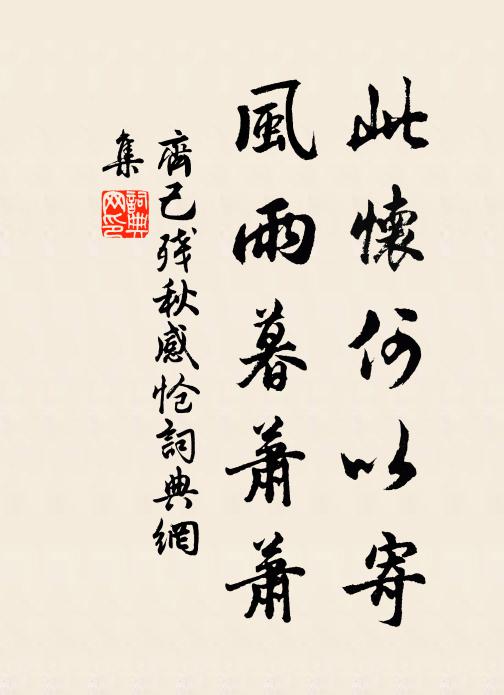 此懷何以寄
風雨暮蕭蕭
齊己殘秋感愴詞典網
集
詞典網印